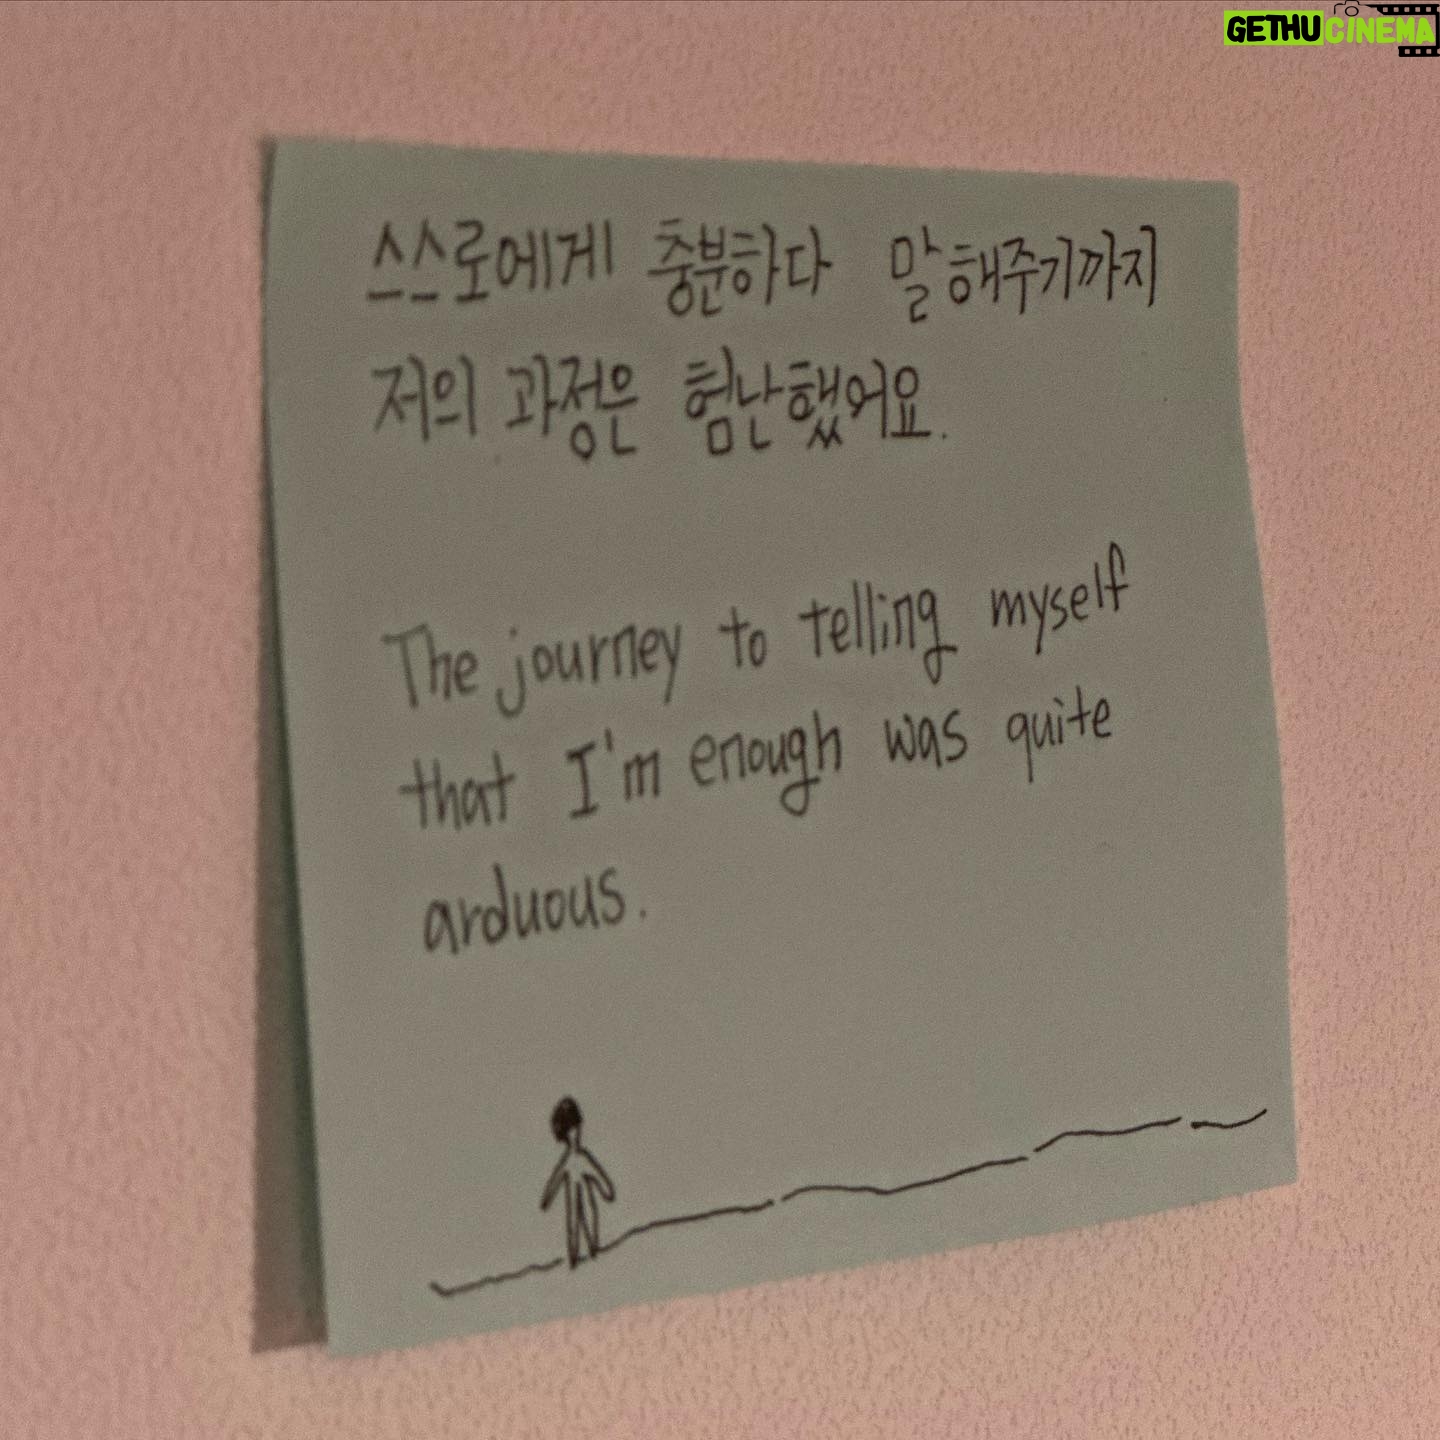 GETHUCINEMA
스스로에게 충분하다 말해주기까지
저의 과정은 험난했어요.
The journey to telling myself
that I'm enough was quite
arduous.